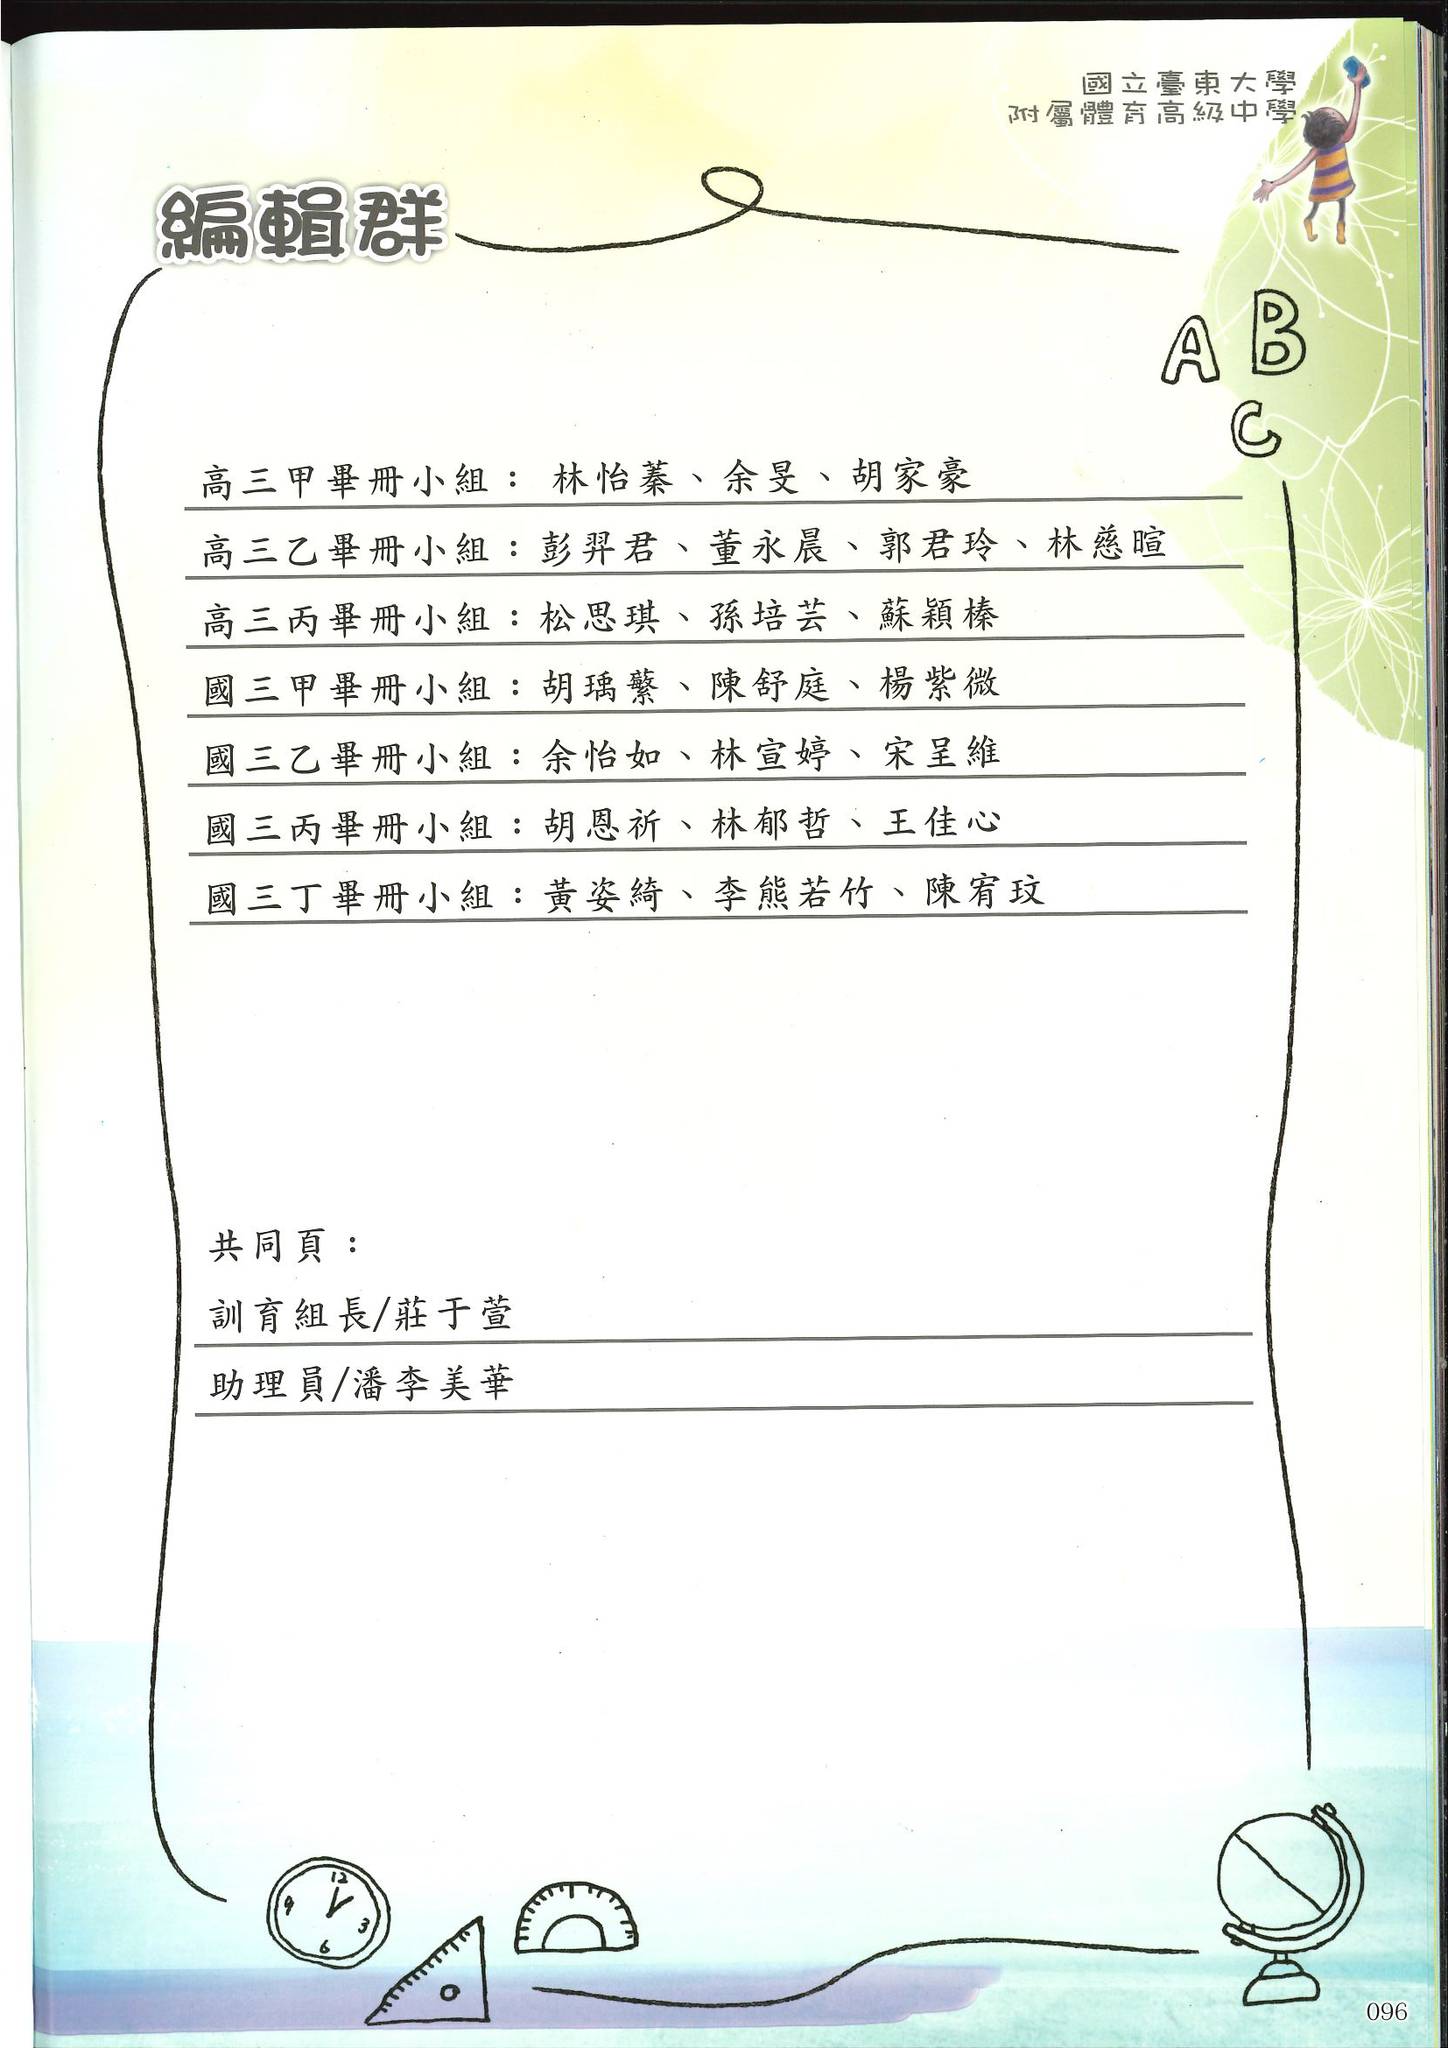 國立臺東大學
附屬體育高級中學
編輯群
A B
C
高三甲畢冊小組： 林怡蓁、余旻、胡家豪
高三乙畢冊小組：彭羿君、董永晨、郭君玲、林慈暄
高三丙畢冊小組：松思琪、孫培芸、蘇穎榛
國三甲畢冊小組：胡瑀蘩、陳舒庭、楊紫微
國三乙畢冊小組：余怡如、林宣婷、宋呈維
國三丙畢冊小組：胡恩祈、林郁哲、王佳心
國三丁畢冊小組：黃姿綺、李熊若竹、陳宥玟
共同頁：
訓育組長/莊于萱
助理員/潘李美華
12
9 3
6
096